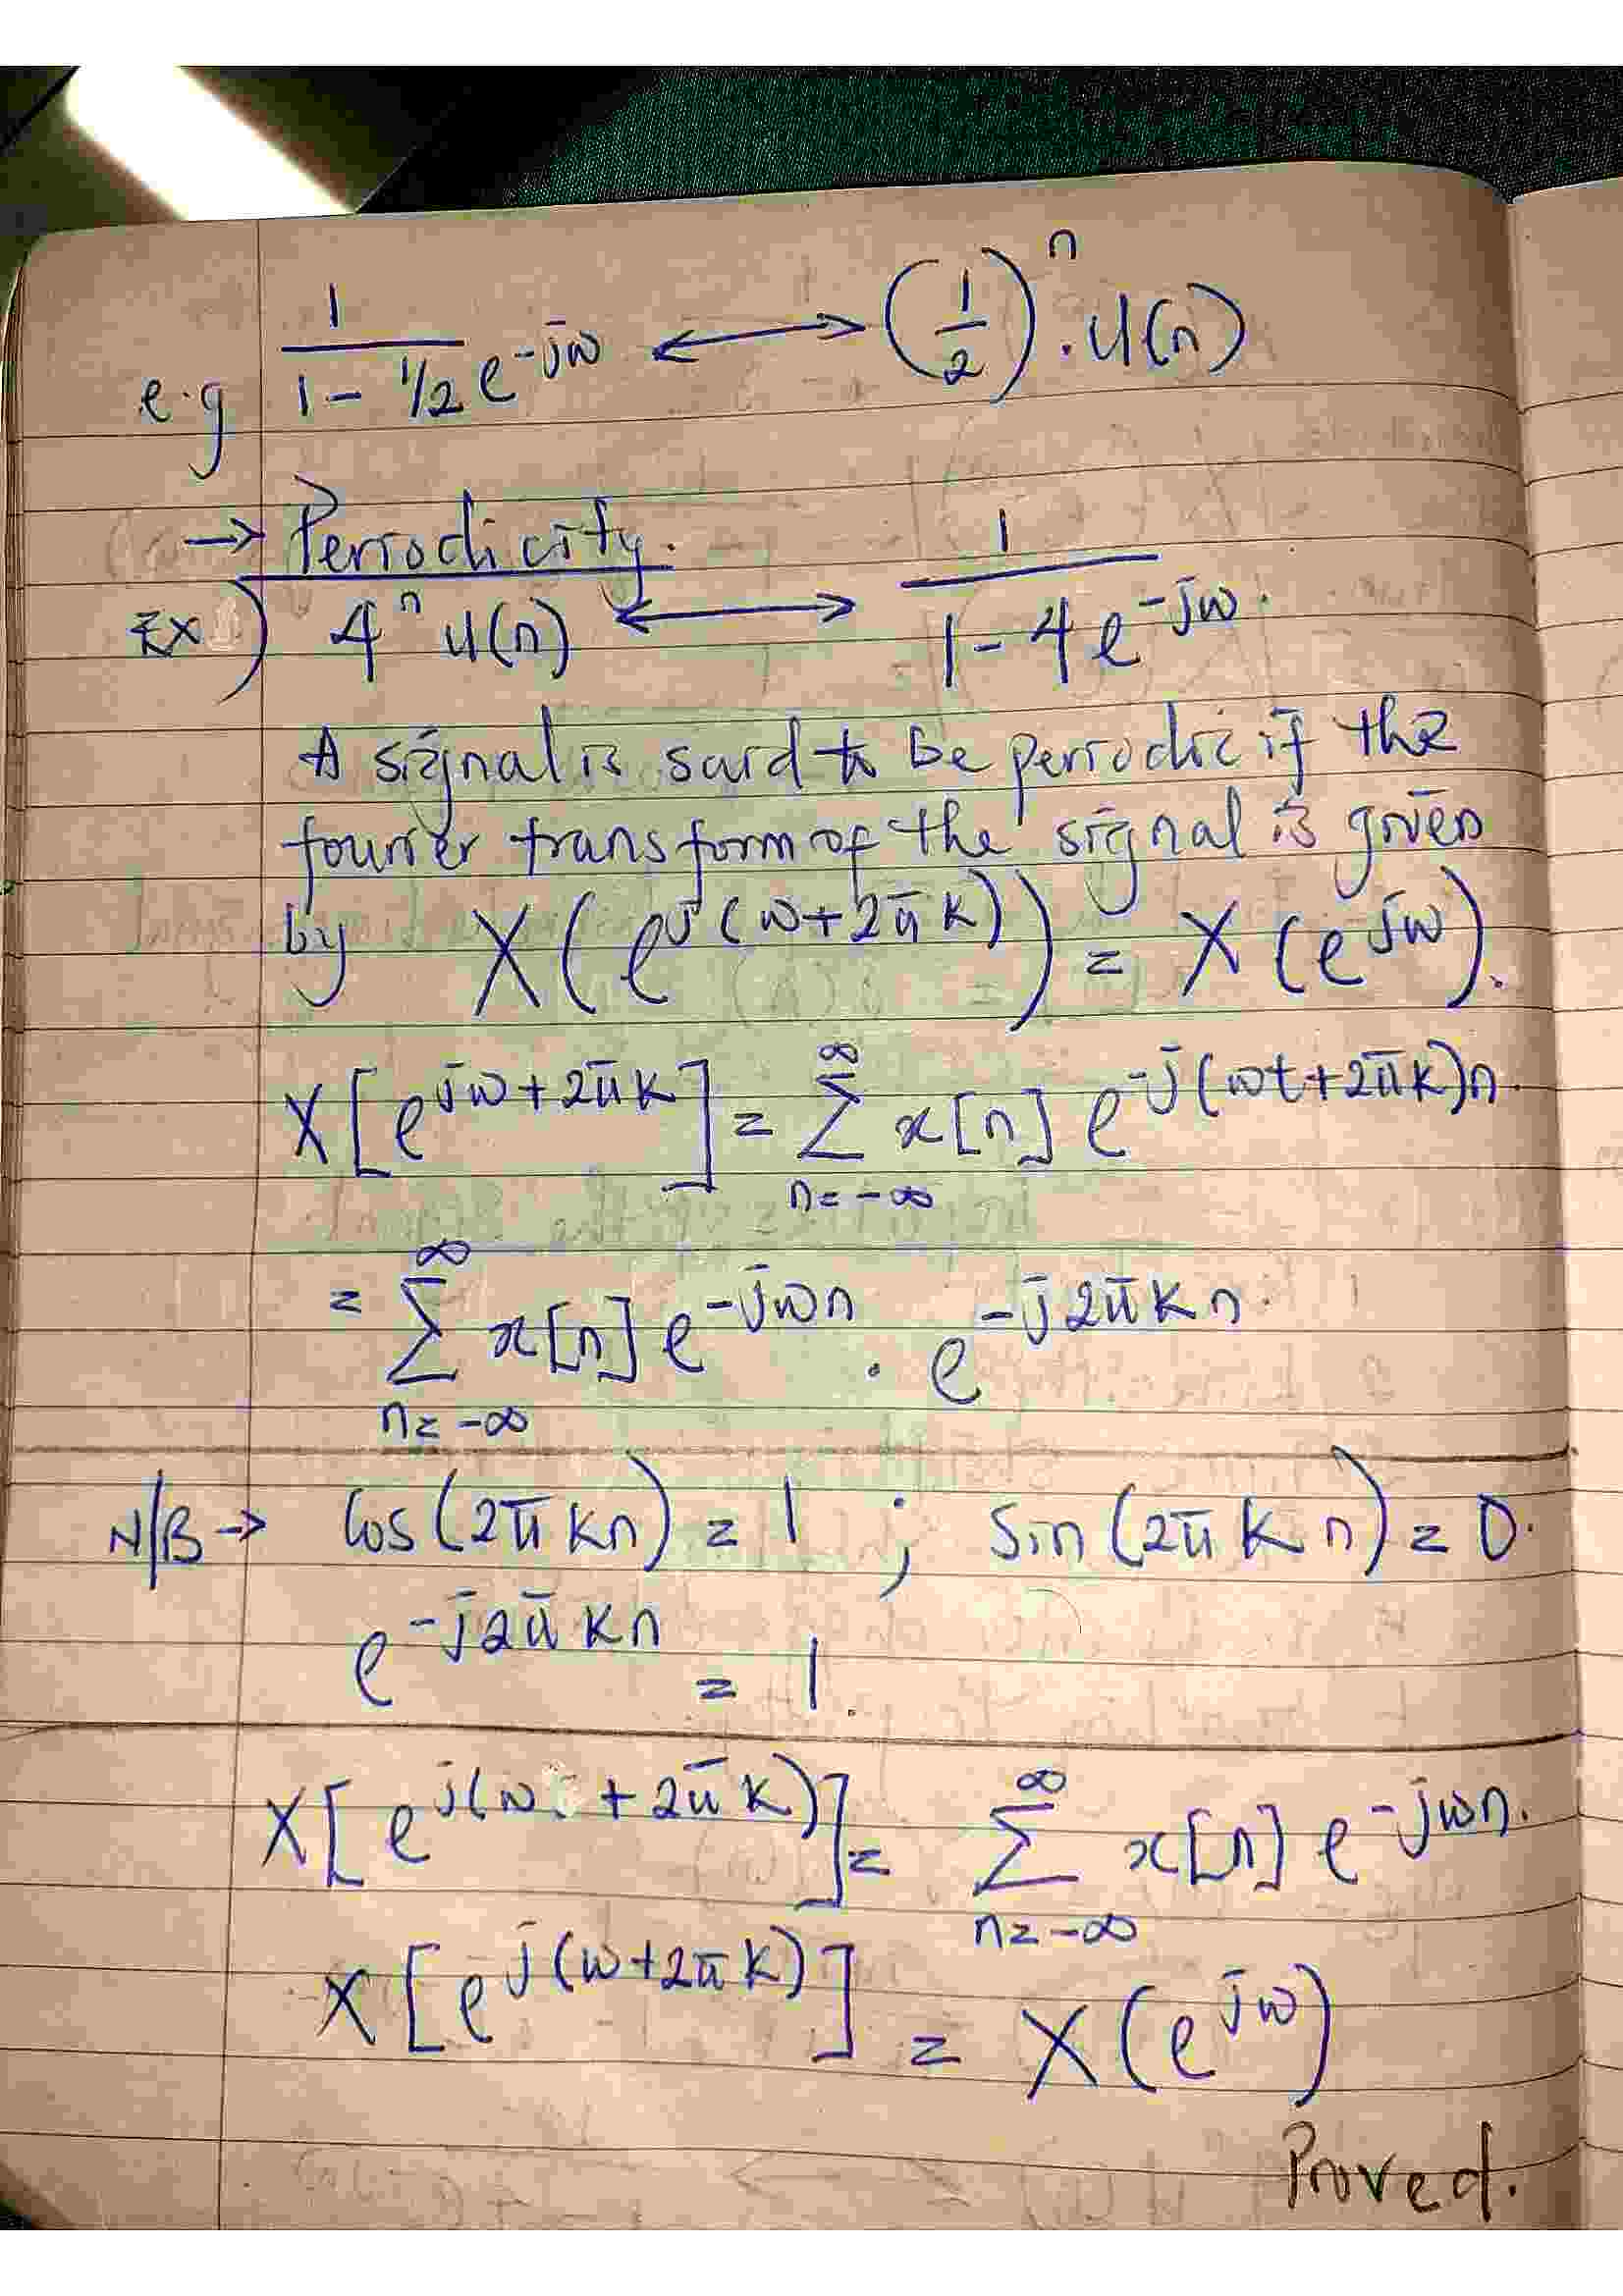 e.g 1/(1 - 1/2 e^{-jw}) ⟷ (1/2)^n . u(n)
→ Periodicity.
Ex) 4^n u(n) ⟷ 1/(1 - 4e^{-jw}).
A signal is said to be periodic if the
fourier transform of the signal is given
by X(e^{j(w+2πk)}) = X(e^{jw}).
X[e^{jw+2πk}] = ∑_{n=-∞}^{∞} x[n] e^{-j(wt+2πk)n}.
= ∑_{n=-∞}^{∞} x[n] e^{-jwn} . e^{-j2πkn}.
N/B → Cos(2πkn) = 1 ; Sin(2πkn) = 0.
e^{-j2πkn} = 1.
X[e^{j(w + 2πk)}] = ∑_{n=-∞}^{∞} x[n] e^{-jwn}.
X[e^{j(w+2πk)}] = X(e^{jw})
Proved.